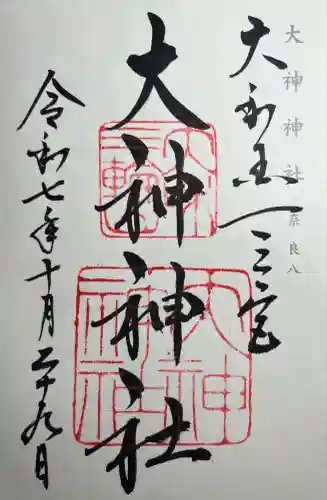 大神神社
奈良八
大和国一之宮
大神神社
令和七年十月二十九日
三輪
大神
大神神社